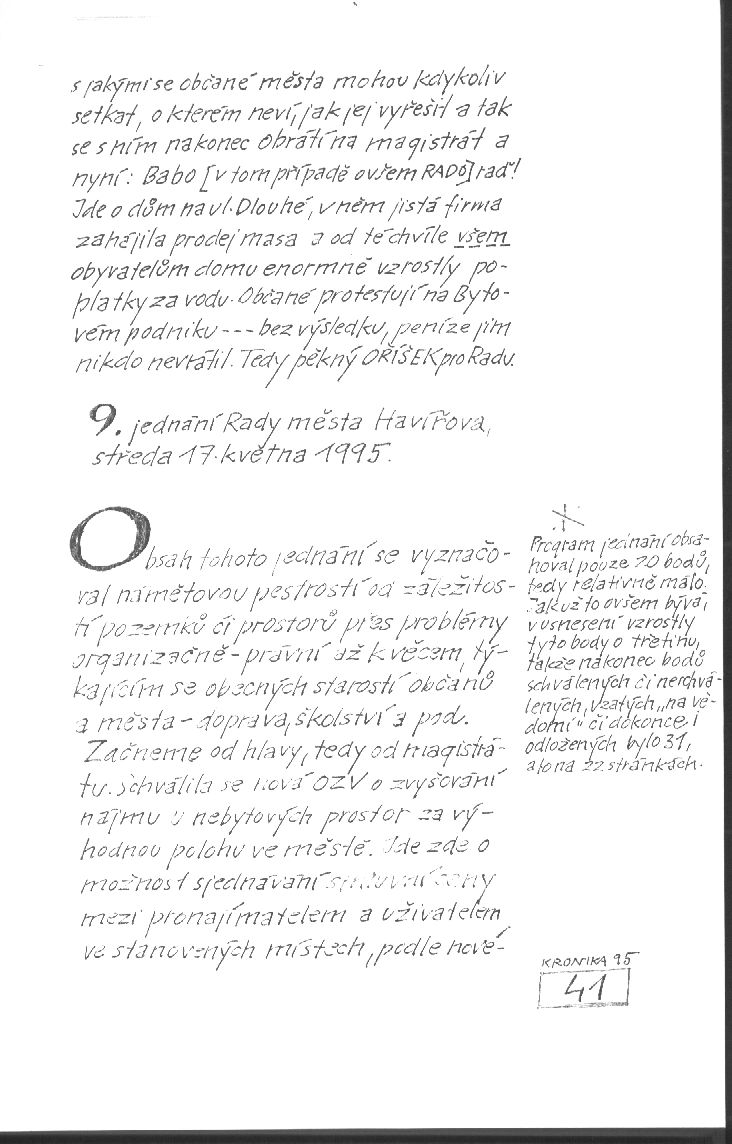 s jakými se občané města mohou kdykoliv
setkat, o kterém neví, jak jej vyřešit a tak
se s ním nakonec obrátí na magistrát a
nyní: Babo [v tom případě ovšem RADO] raď!
Jde o dům na ul. Dlouhé, v něm jistá firma
zahájila prodej masa a od té chvíle všem
obyvatelům domu enormně vzrostly po-
platky za vodu. Občané protestují na Byto-
vém podniku --- bez výsledku, peníze jim
nikdo nevrátil. Tedy pěkný OŘÍŠEK pro Radu.
9. jednání Rady města Havířova,
středa 17. května 1995.
Obsah tohoto jednání se vyznačo-
val námětovou pestrostí od záležitos-
tí pozemků či prostorů přes problémy
organizačně-právní až k věcem, tý-
kajícím se obecných starostí občanů
a města - doprava, školství a pod.
Začneme od hlavy, tedy od magistrá-
tu. Schválila se nová OZV o zvyšování
nájmu u nebytových prostor za vý-
hodnou polohu ve městě. Jde zde o
možnost sjednávání smluvní ceny
mezi pronajímatelem a uživatelem
ve stanovených místech, podle nové-
Program jednání obsa-
hoval pouze 20 bodů,
tedy relativně málo.
Jak už to ovšem bývá,
v usnesení vzrostly
tyto body o třetinu,
takže nakonec bodů
schválených či neschvá-
lených, vzatých „na vě-
domí" či dokonce i
odložených bylo 31,
a to na 22 stránkách.
KRONIKA 95
41